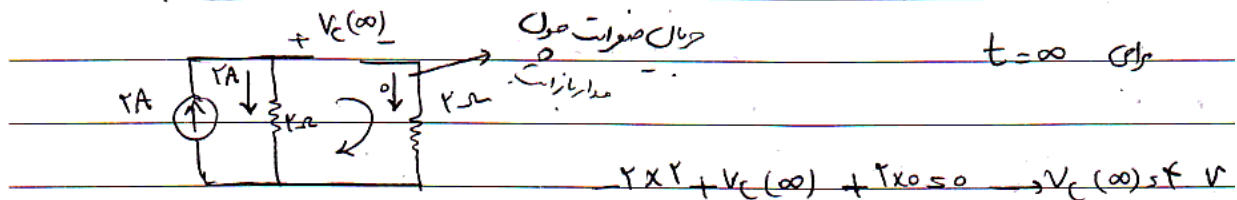 برای t = ∞
+ Vc(∞) −
جریان صفر است چون
مدار باز است.
۲A
۲A
۲Ω
۰
۲Ω
−۲×۲ + Vc(∞) + ۲×۰ = ۰ → Vc(∞) = ۴ V